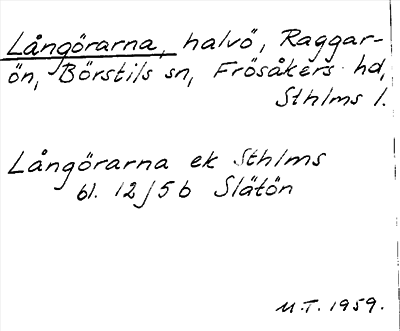 Långörarna, halvö, Raggar-
ön, Börstils sn, Frösåkers hd,
Sthlms l.
Långörarna ek Sthlms
bl. 12j5b Slätön
M.T. 1959.